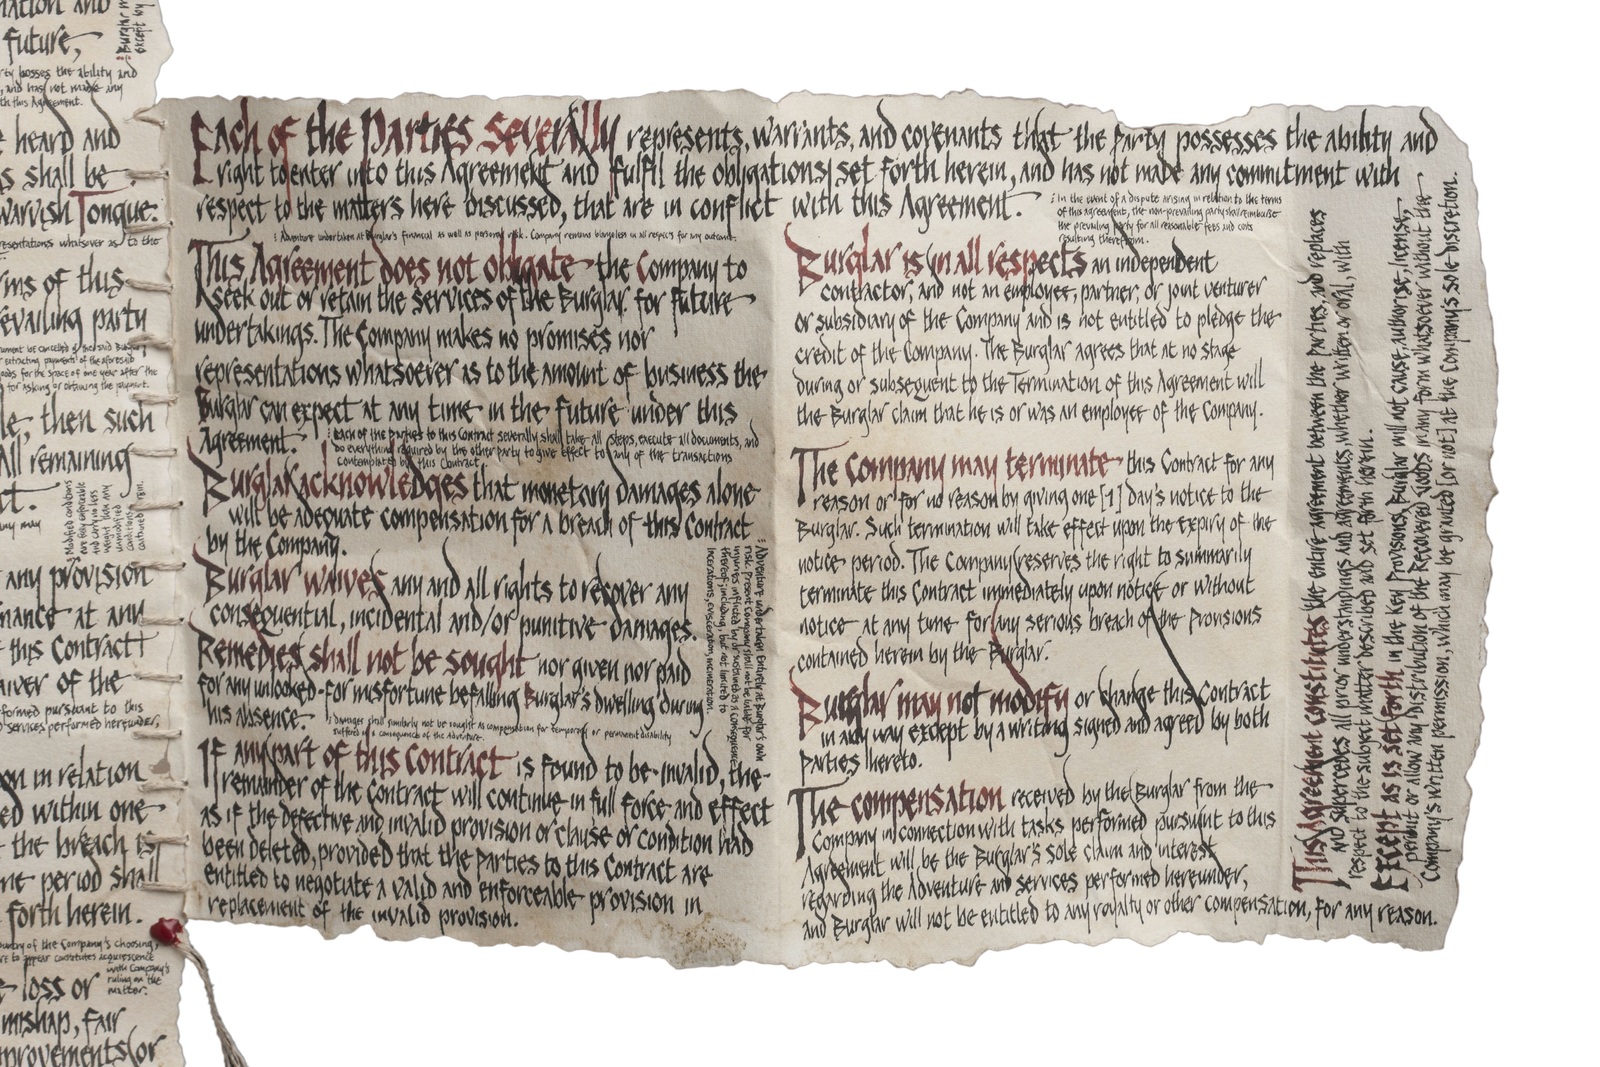 nation and
future,
Burglar
except by
ty posses the ability and
, and has not made any
th this Agreement.
e heard and
s shall be
Warvish Tongue.
resentations whatsoever as to the
rms of this
evailing party
rument be cancelled if the said Burglar
extracting payment of the aforesaid
goods for the space of one year after the
for asking or obtaining the payment.
le, then such
All remaining
ct.
any may
Modified conditions
are fully enforceable
and carry no less
weight than any
unmodified
conditions
contained herein.
any provision
mance at any
this Contract
aiver of the
formed pursuant to this
d services performed hereunder,
on in relation
ed within one
the breach is
me period shall
forth herein.
ountry of the Company's choosing,
re to appear constitutes acquiescence
with Company's
ruling on the
matter.
loss or
mishap, fair
mprovements (or
Each of the Parties severally represents, warrants, and covenants that the Party possesses the ability and
right to enter into this Agreement and fulfil the obligations set forth herein, and has not made any commitment with
respect to the matters here discussed, that are in conflict with this Agreement.
In the event of a dispute arising in relation to the terms
of this agreement, the non-prevailing party shall reimburse
the prevailing party for all reasonable fees and costs
resulting therefrom.
Adventure undertaken at Burglar's financial as well as personal risk. Company remains blameless in all respects for any outcome.
This Agreement does not obligate the Company to
seek out or retain the services of the Burglar for future
undertakings. The Company makes no promises nor
representations whatsoever as to the amount of business the
Burglar can expect at any time in the future under this
Agreement.
Each of the Parties to this Contract severally shall take all steps, execute all documents, and
do everything required by the other party to give effect to any of the transactions
contemplated by this Contract
Burglar acknowledges that monetary damages alone
will be adequate compensation for a breach of this Contract
by the Company.
Burglar waives any and all rights to recover any
consequential, incidental and/or punitive damages.
Remedies shall not be sought nor given nor paid
for any unlooked-for misfortune befalling Burglar's dwelling during
his absence.
Damages shall similarly not be sought as compensation for temporary or permanent disability
suffered as a consequence of the Adventure.
Adventure undertaken Entirely at Burglar's own
risk. Present Company shall not be liable for
injuries inflicted by or sustained as a consequence
thereof, including, but not limited to
lacerations, evisceration, incineration.
If any part of this contract is found to be invalid, the
remainder of the Contract will continue in full force and effect
as if the defective and invalid provision or clause or condition had
been deleted, provided that the Parties to this Contract are
entitled to negotiate a valid and enforceable provision in
replacement of the invalid provision.
Burglar is in all respects an independent
contractor, and not an employee, partner, or joint venturer
or subsidiary of the Company and is not entitled to pledge the
credit of the Company. The Burglar agrees that at no stage
during or subsequent to the Termination of this Agreement will
the Burglar claim that he is or was an employee of the Company.
The Company may terminate this Contract for any
reason or for no reason by giving one [1] day's notice to the
Burglar. Such termination will take effect upon the expiry of the
notice period. The Company reserves the right to summarily
terminate this Contract immediately upon notice or without
notice at any time for any serious breach of the Provisions
contained herein by the Burglar.
Burglar may not modify or change this Contract
in any way except by a writing signed and agreed by both
Parties hereto.
The compensation received by the Burglar from the
Company in connection with tasks performed pursuant to this
Agreement will be the Burglar's sole claim and interest
regarding the Adventure and services performed hereunder,
and Burglar will not be entitled to any royalty or other compensation, for any reason.
This Agreement constitutes the entire agreement between the Parties, and replaces
and supercedes all prior understandings and agreements, whether written or oral, with
respect to the subject matter described and set forth herein.
Except as is set forth in the Key Provisions, Burglar will not cause, authorise, license,
permit or allow any Distribution of the Recovered Goods in any form whatsoever without the
Company's written permission, which may be granted [or not] at the Company's sole discretion.